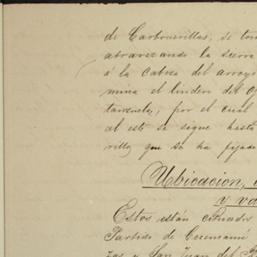 de Carbonerillas, se tom
atravezando la sierra
á la Cabeza del arroyo
mina el lindero del O
por el cual
al este se sigue hasta
que se ha fijado
Ubicacion,
y va
Estos están situados
Partido de
San Juan del